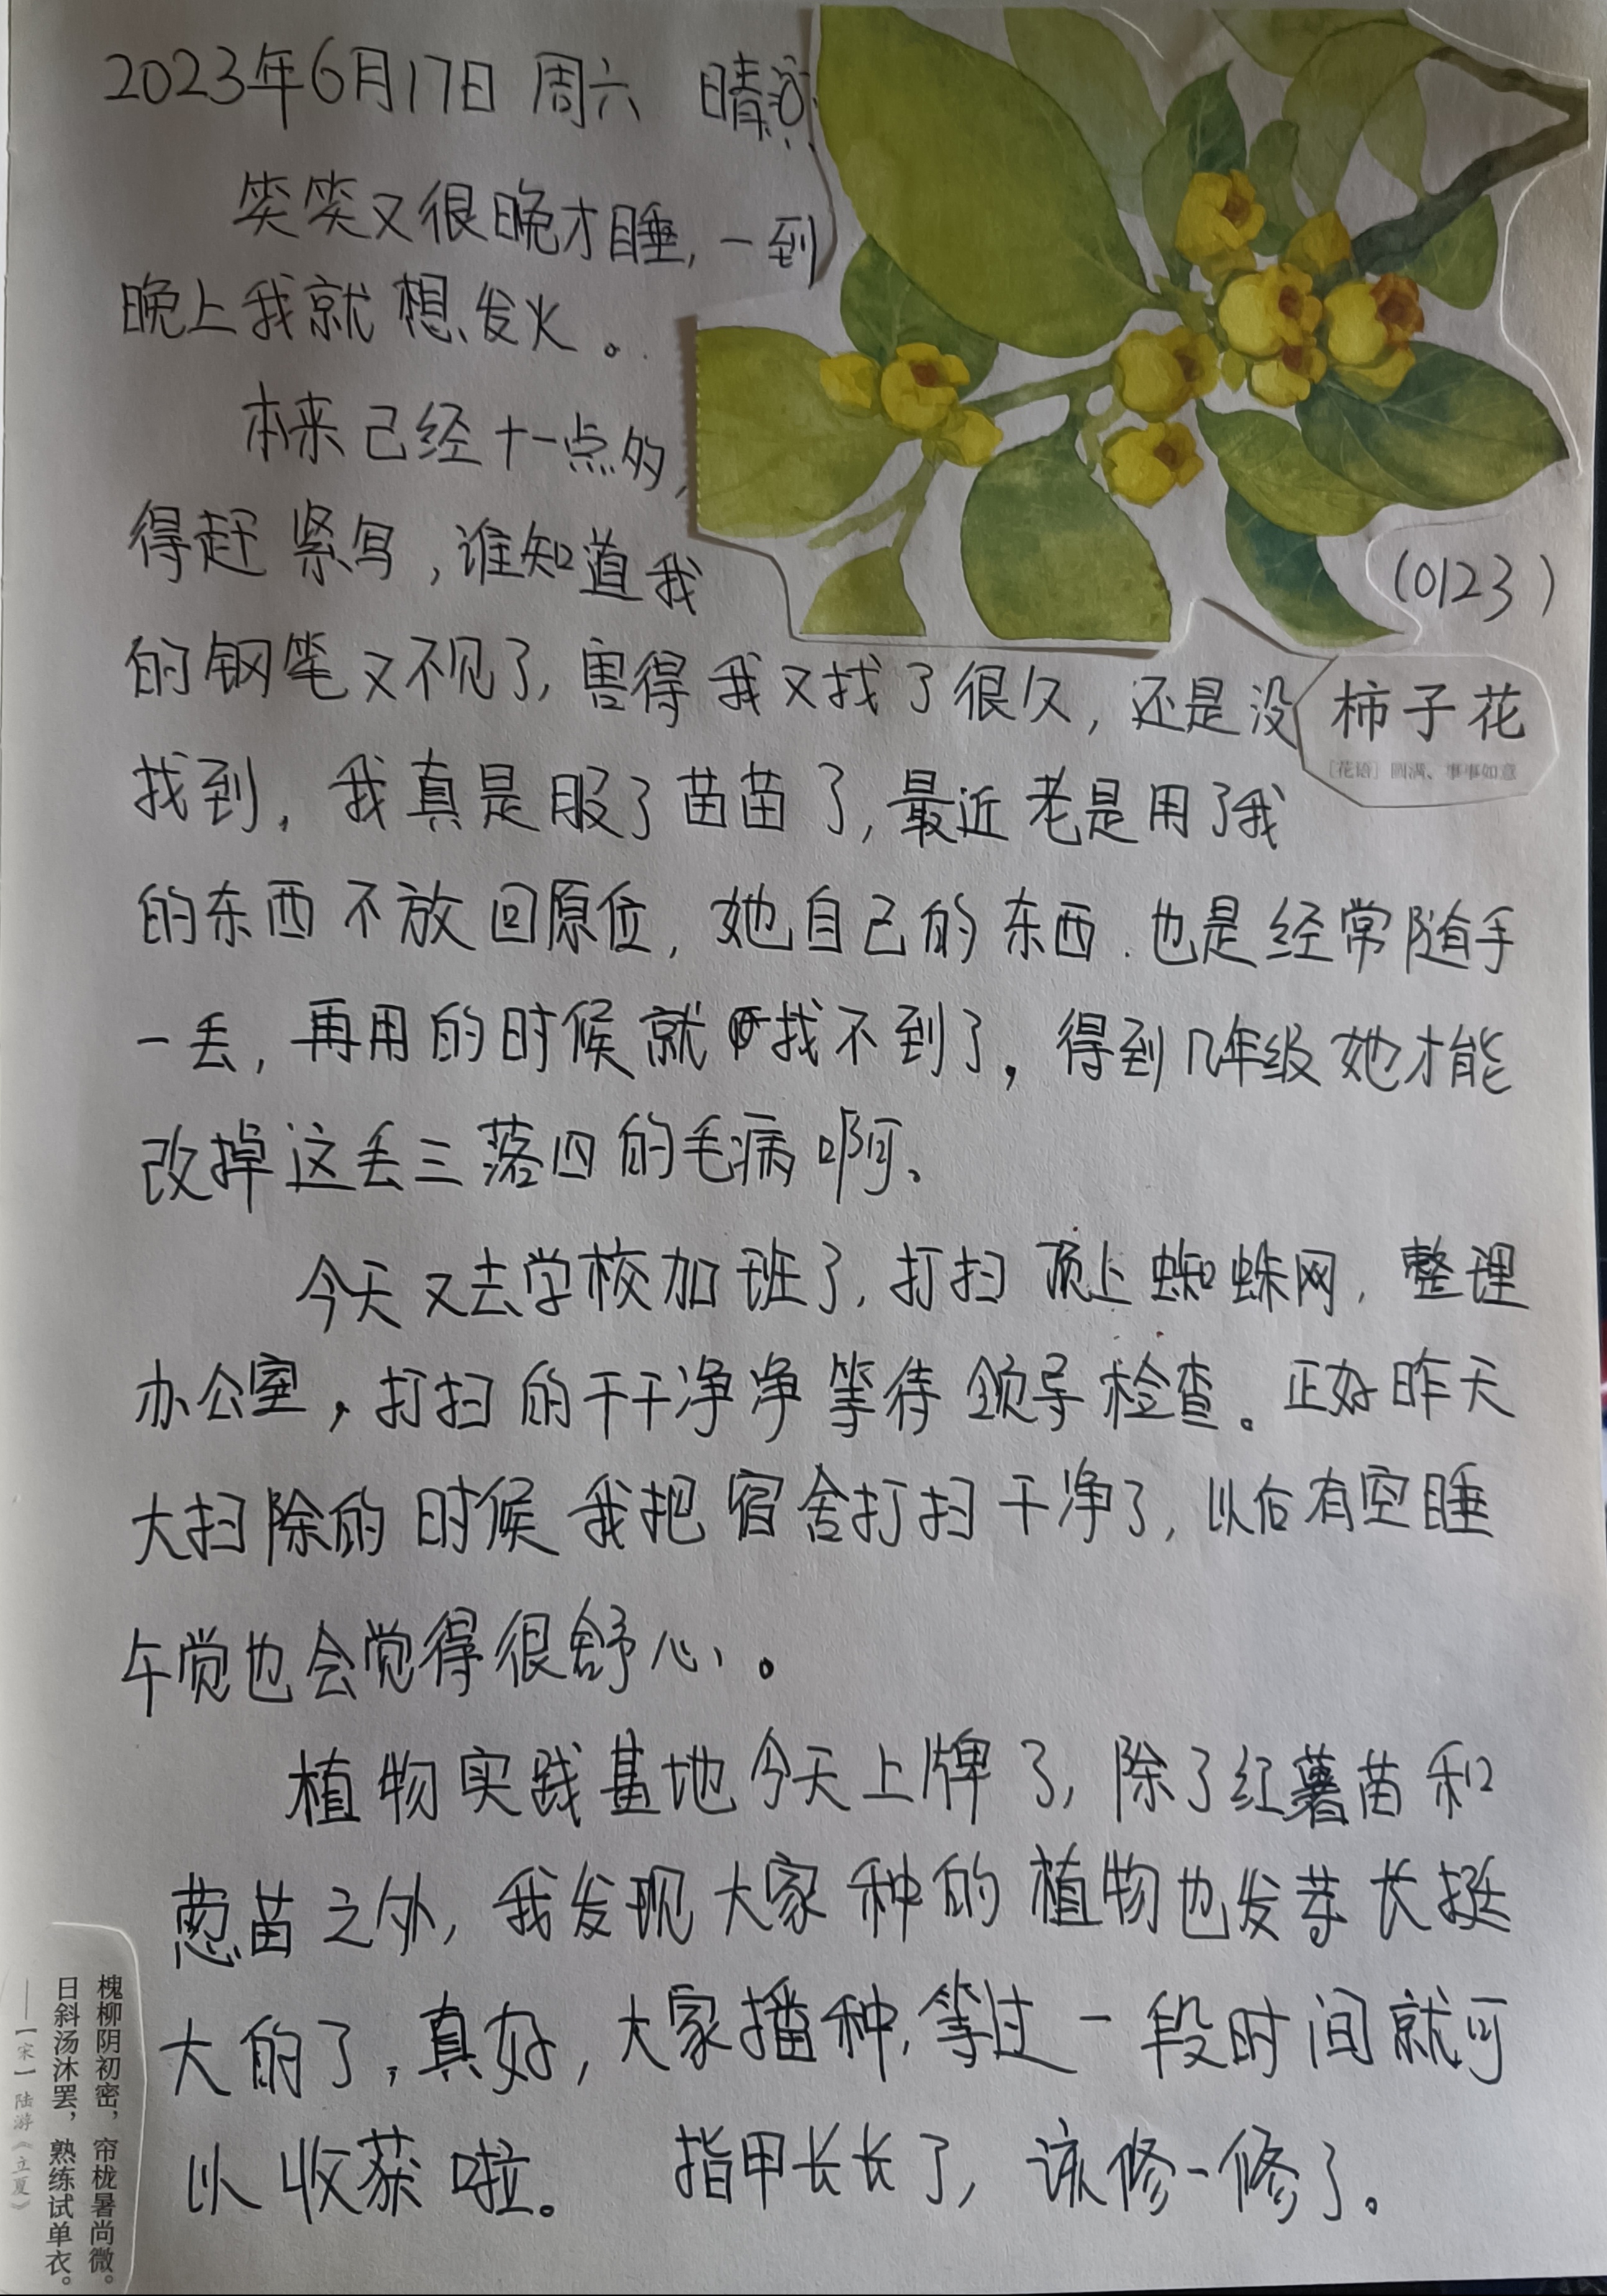 2023年6月17日 周六 晴
笑笑又很晚才睡,一到
晚上我就想发火。
本来已经十一点的,
得赶紧写,谁知道我
(0123)
的钢笔又不见了,害得我又找了很久,还是没
柿子花
[花语] 圆满、事事如意
找到。我真是服了苗苗了,最近老是用了我
的东西不放回原位,她自己的东西.也是经常随手
一丢,再用的时候就找不到了。得到几年级她才能
改掉这丢三落四的毛病啊。
今天又去学校加班了,打扫顶上蜘蛛网,整理
办公室,打扫的干干净净等待领导检查。正好昨天
大扫除的时候我把宿舍打扫干净了,以后有空睡
午觉也会觉得很舒心。
植物实践基地今天上牌了,除了红薯苗和
葱苗之外,我发现大家种的植物也发芽长挺
大的了,真好,大家播种,等过一段时间就可
以收获啦。 指甲长长了,该修一修了。
槐柳阴初密,帘栊暑尚微。
日斜汤沐罢,熟练试单衣。
——[宋] 陆游《立夏》